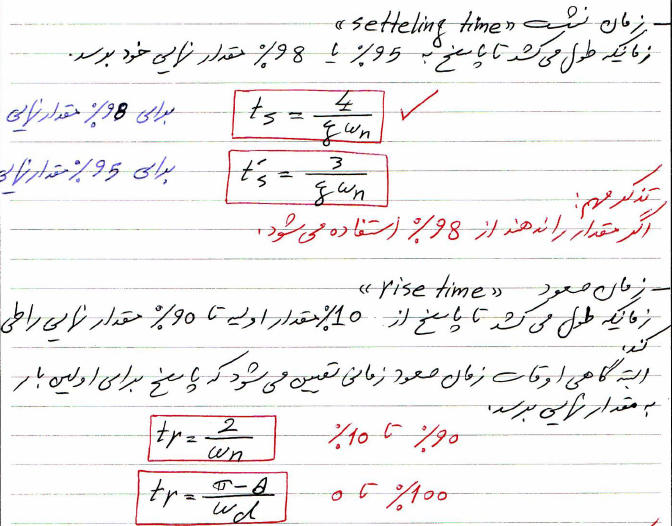 - زمان نشت «setteling time»
زمانیکه طول می‌کشد تا پاسخ به 95٪ یا 98٪ مقدار نهایی خود برسد.
ts = 4 / ξωn ✓ برای 98٪ مقدار نهایی
t's = 3 / ξωn برای 95٪ مقدار نهایی
تذکر مهم:
اگر مقدار را ندهند از 98٪ استفاده می‌شود.
- زمان صعود «rise time»
زمانیکه طول می‌کشد تا پاسخ از 10٪ مقدار اولیه تا 90٪ مقدار نهایی را طی
کند.
البته گاهی اوقات زمان صعود زمانی تعیین می‌شود که پاسخ برای اولین بار
به مقدار نهایی برسد.
tr = 2 / ωn 10٪ تا 90٪
tr = π-θ / ωd 0 تا 100٪